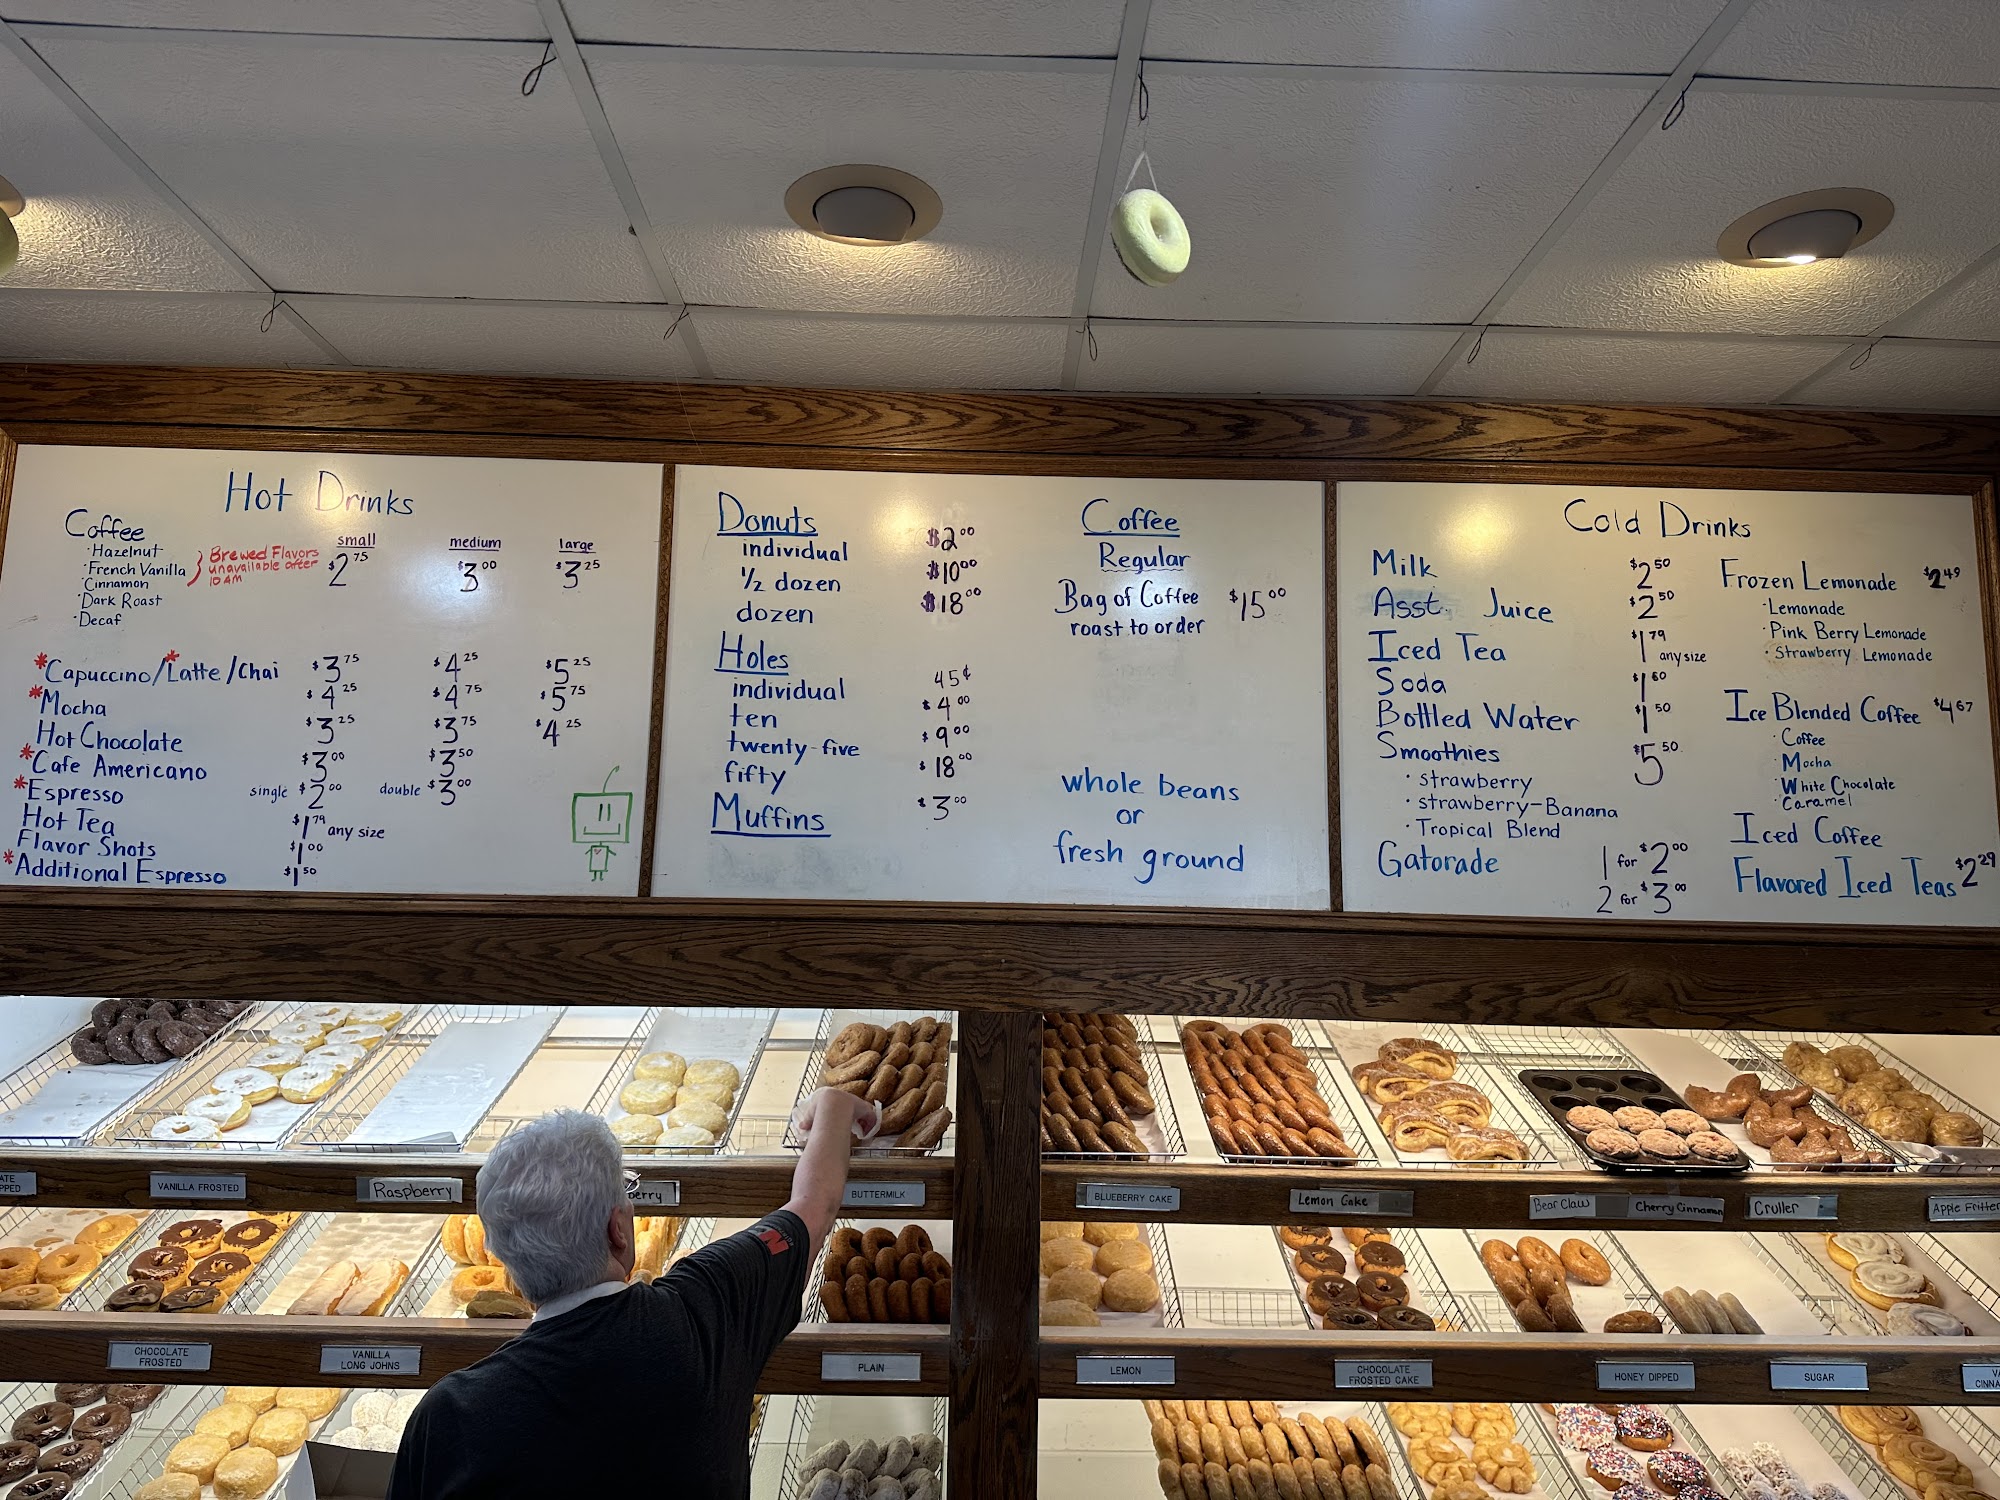 Hot Drinks
Coffee
small medium large
· Hazelnut
· French Vanilla
· Cinnamon
· Dark Roast
· Decaf
Brewed Flavors
unavailable after
10 AM
$2.75 $3.00 $3.25
*Capuccino/*Latte/Chai $3.75 $4.25 $5.25
*Mocha $4.25 $4.75 $5.75
Hot Chocolate $3.25 $3.75 $4.25
*Cafe Americano $3.00 $3.50
*Espresso single $2.00 double $3.00
Hot Tea $1.79 any size
Flavor Shots $1.00
*Additional Espresso $1.50
Donuts
individual $2.00
1/2 dozen $10.00
dozen $18.00
Holes
individual 45¢
ten $4.00
twenty-five $9.00
fifty $18.00
Muffins $3.00
Coffee
Regular
Bag of Coffee $15.00
roast to order
whole beans
or
fresh ground
Cold Drinks
Milk $2.50
Asst. Juice $2.50
Iced Tea $1.79 any size
Soda $1.60
Bottled Water $1.50
Smoothies $5.50
· strawberry
· strawberry-Banana
· Tropical Blend
Gatorade 1 for $2.00
2 for $3.00
Frozen Lemonade $2.49
· Lemonade
· Pink Berry Lemonade
· Strawberry Lemonade
Ice Blended Coffee $4.67
· Coffee
· Mocha
· White Chocolate
· Caramel
Iced Coffee
Flavored Iced Teas $2.29
VANILLA FROSTED
Raspberry
BUTTERMILK
BLUEBERRY CAKE
Lemon Cake
Bear Claw
Cherry Cinnamon
Cruller
Apple Fritter
CHOCOLATE
FROSTED
VANILLA
LONG JOHNS
PLAIN
LEMON
CHOCOLATE
FROSTED CAKE
HONEY DIPPED
SUGAR